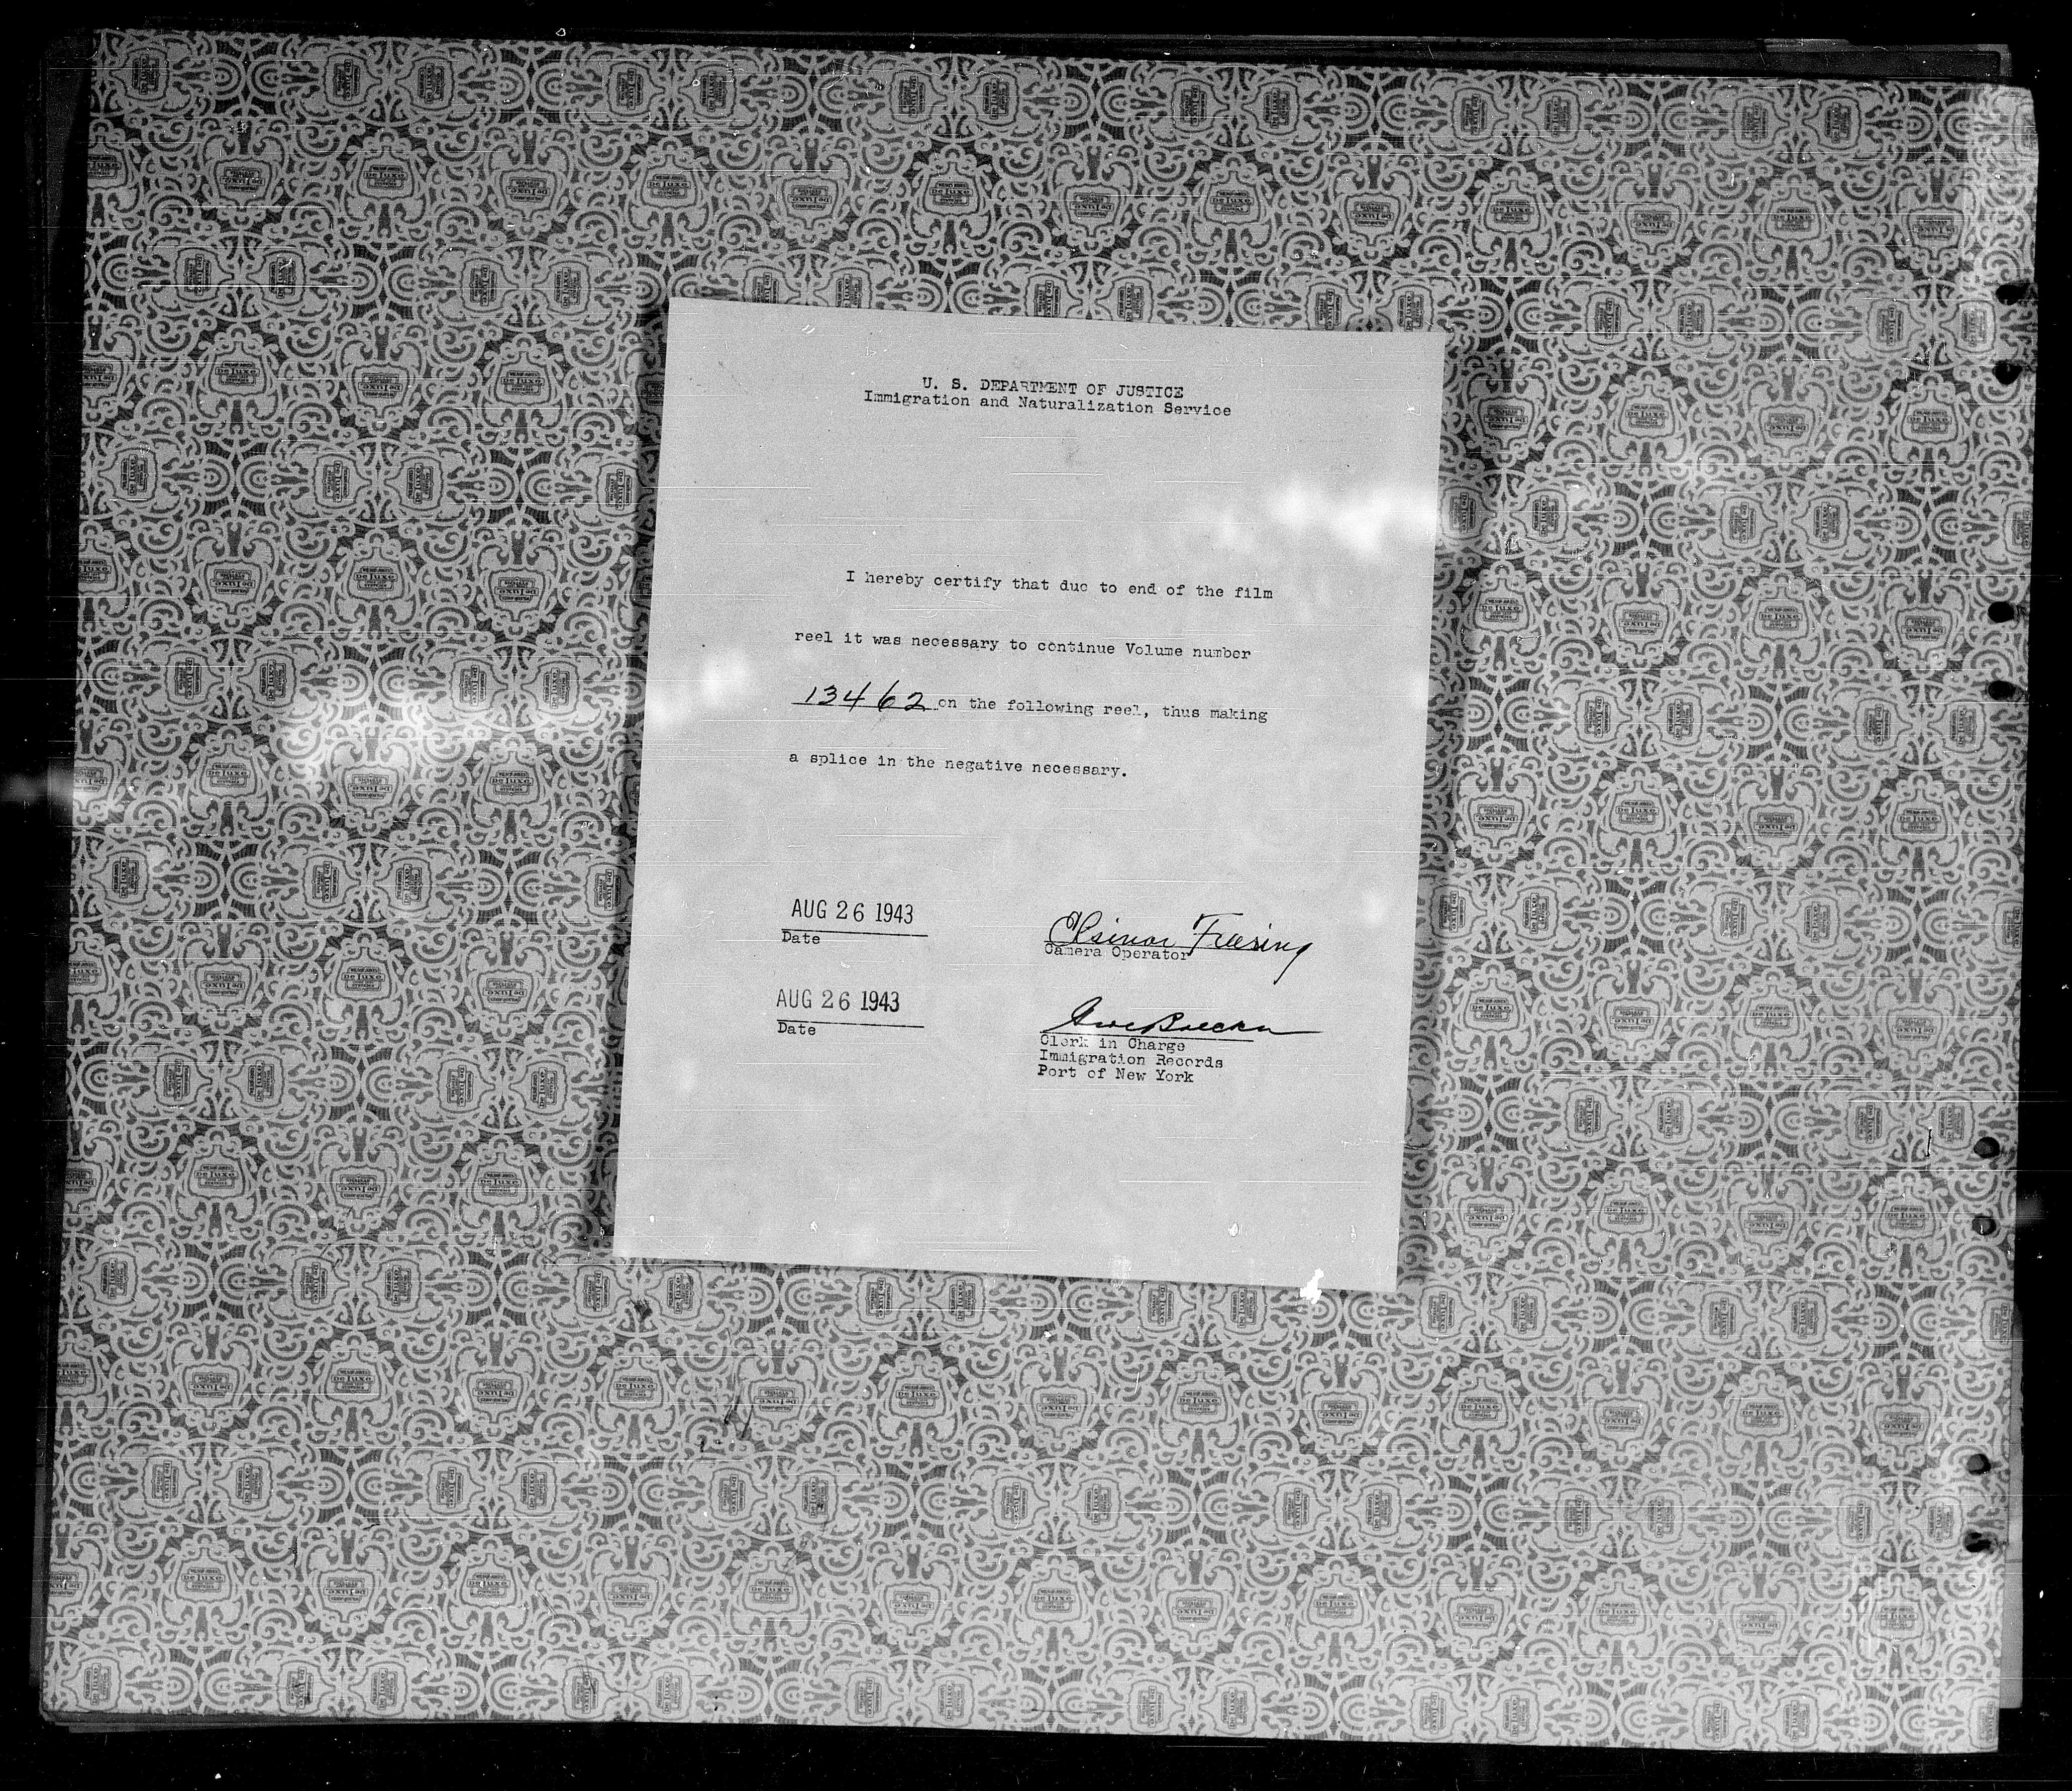 U. S. DEPARTMENT OF JUSTICE
Immigration and Naturalization Service
I hereby certify that due to end of the film
reel it was necessary to continue Volume number
13462 on the following reel, thus making
a splice in the negative necessary.
AUG 26 1943
Date
Camera Operator
AUG 26 1943
Date
Clerk in Charge
Immigration Records
Port of New York
De luxe